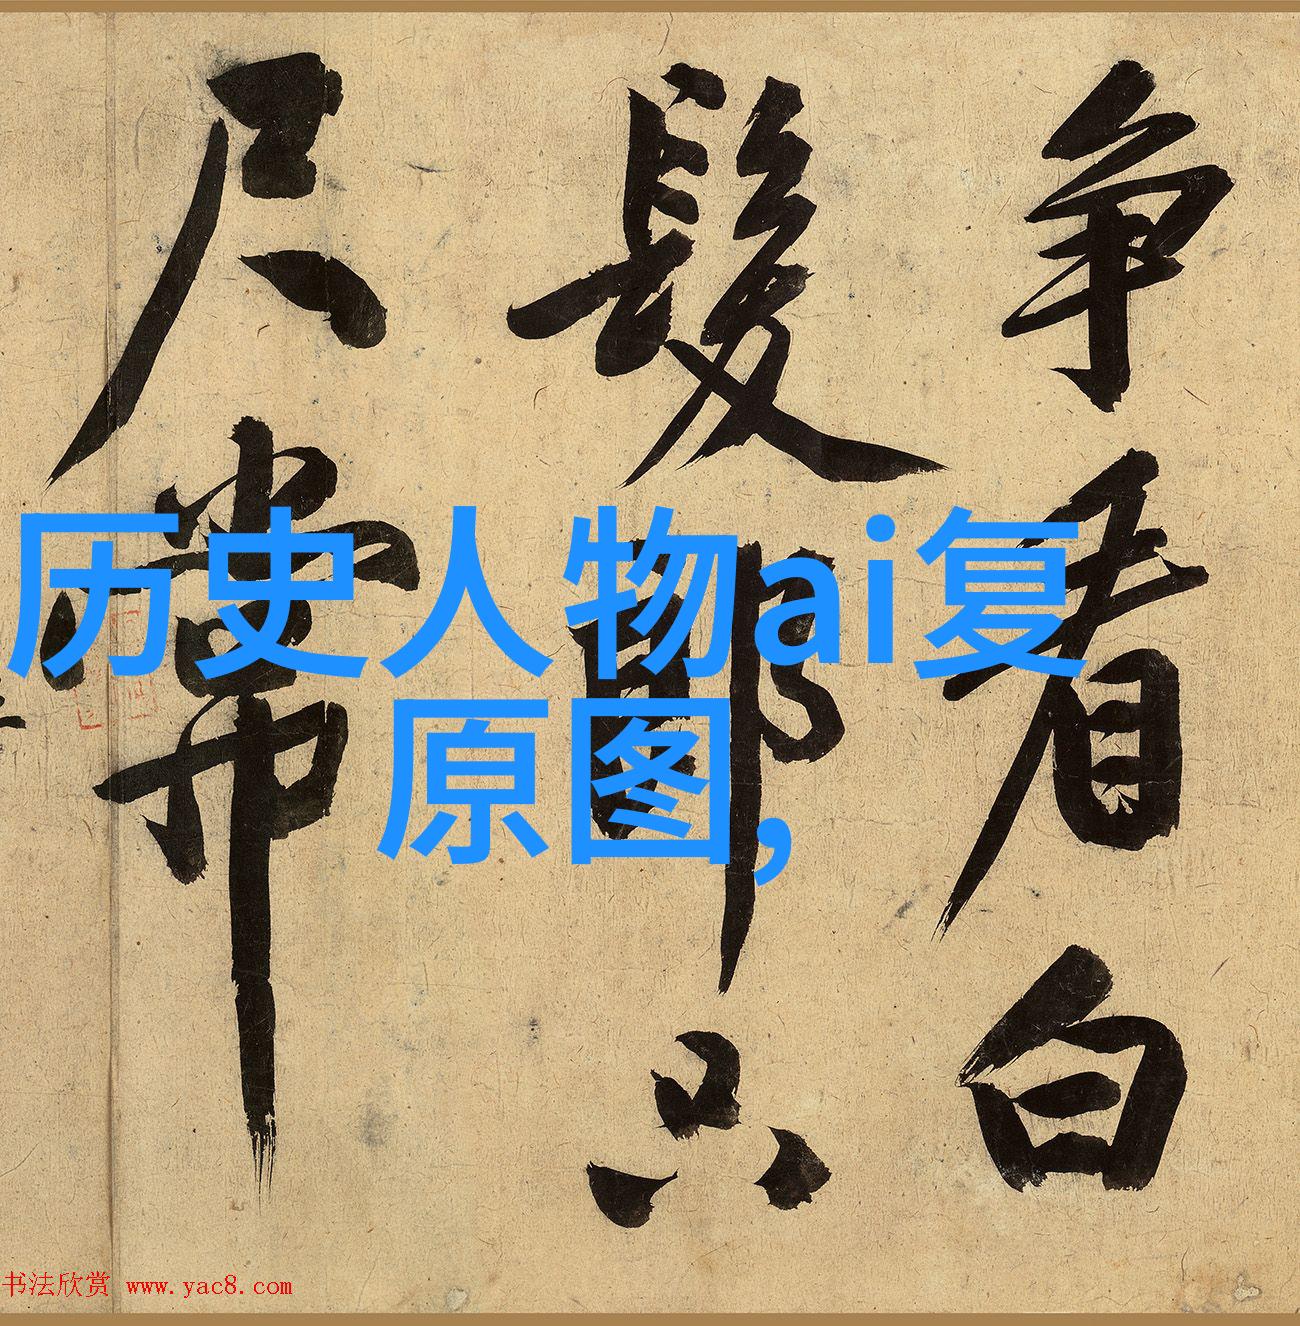 争看白
髮郎只
尺常
历史人物ai复
原图,
书法欣赏 www.yac8.com